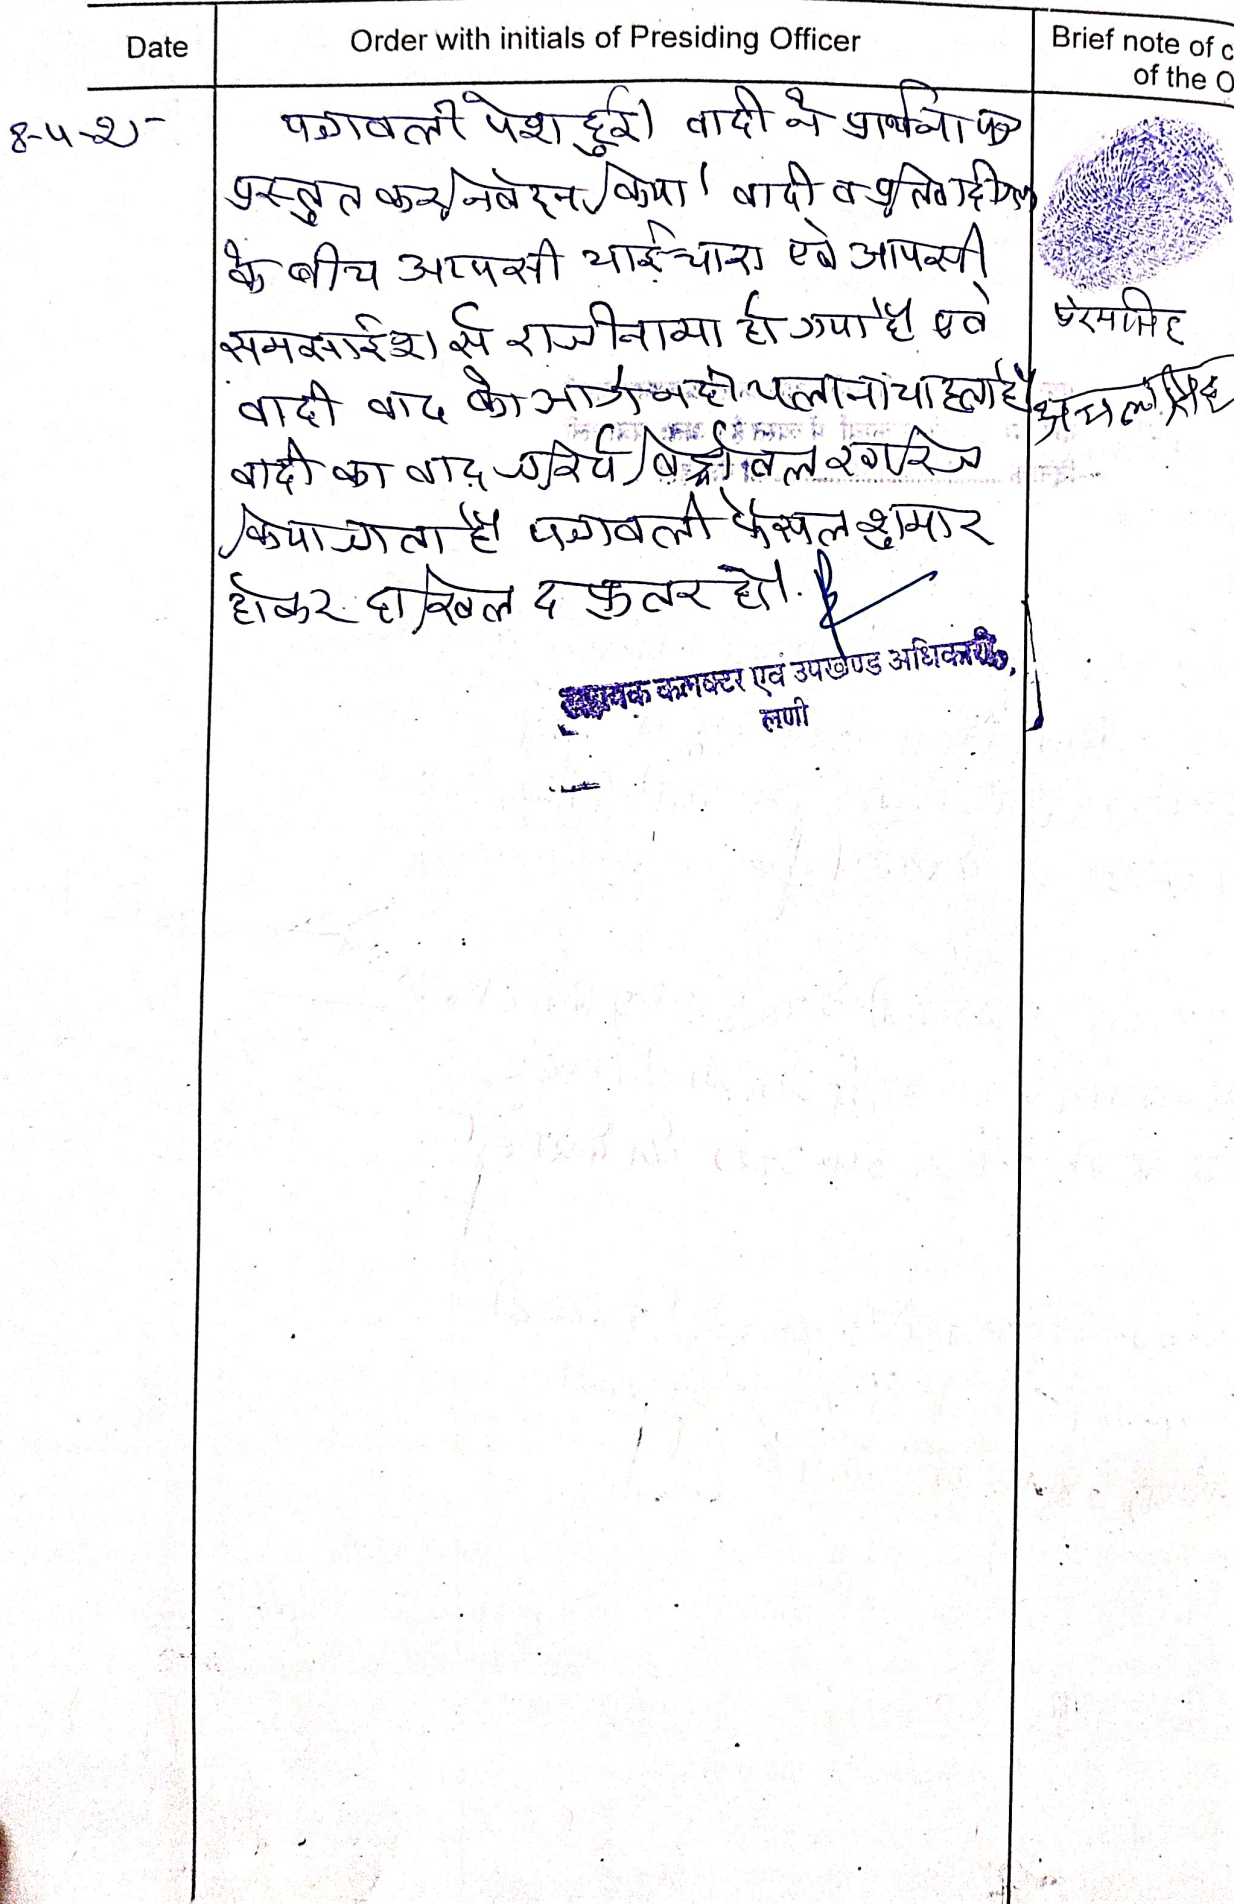 Date
Order with initials of Presiding Officer
Brief note of c
of the O
पत्रावली पेश हुई। वादी ने प्रार्थना पत्र
प्रस्तुत कर निवेदन किया। वादी व प्रतिवादीगण
के बीच आपसी भाईचारा एवं आपसी
समझाईश से राजीनामा हो गया है एवं
वादी वाद को आगे नहीं चलाना चाहता है
वादी का वाद जरिये विड्रोवल खारिज
किया जाता है पत्रावली फैसल शुमार
होकर दाखिल दफ्तर हो।
सहायक कलक्टर एवं उपखण्ड अधिकारी,
लूणी
अचलसिंह